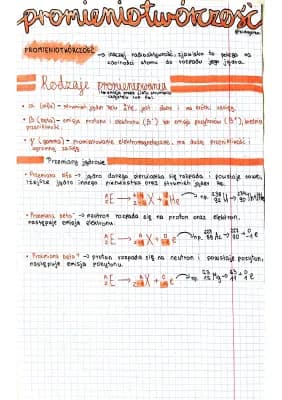 promieniotwórczość
PROMIENIOTWÓRCZOŚĆ → inaczej radioaktywność, zjawisko to polega na
zdolności atomu do rozpadu jego jądra.
Rodzaje promieniowania
• α (alfa) - strumień jąder helu, jest duża i ma krótki zasięg.
• β (beta) - emisja elektronu (β⁻) lub emisja pozytonów (β⁺), średnia
przenikliwość.
• γ (gamma) - promieniowanie elektromagnetyczne, ma dużą przenikliwość i
ogromny zasięg.
Przemiany jądrowe
• Przemiana alfa → jądro danego pierwiastka się rozpada i powstaje nowe,
lżejsze jądro innego pierwiastka oraz strumień jąder He.
E → X + He np. U → Th + He
• Przemiana beta⁻ → neutron rozpada się na proton oraz elektron,
następuje emisja elektronu
E → X + e np. Ac → Th + e
• Przemiana beta⁺ → proton rozpada się na neutron i powstaje pozyton,
następuje emisja pozytonu.
E → X + e np. Mg → Na + e